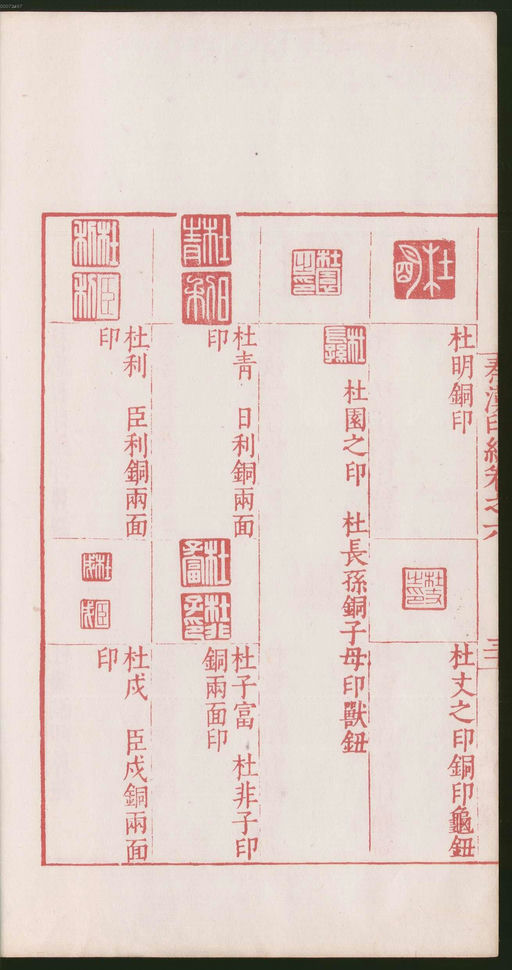 秦漢印統卷之六
杜明銅印
杜丈之印銅印龜鈕
杜園之印　杜長孫銅子母印獸鈕
杜青　日利銅兩面
印
杜子富　杜非子印
銅兩面印
杜利　臣利銅兩面
印
杜戍　臣戍銅兩面
印